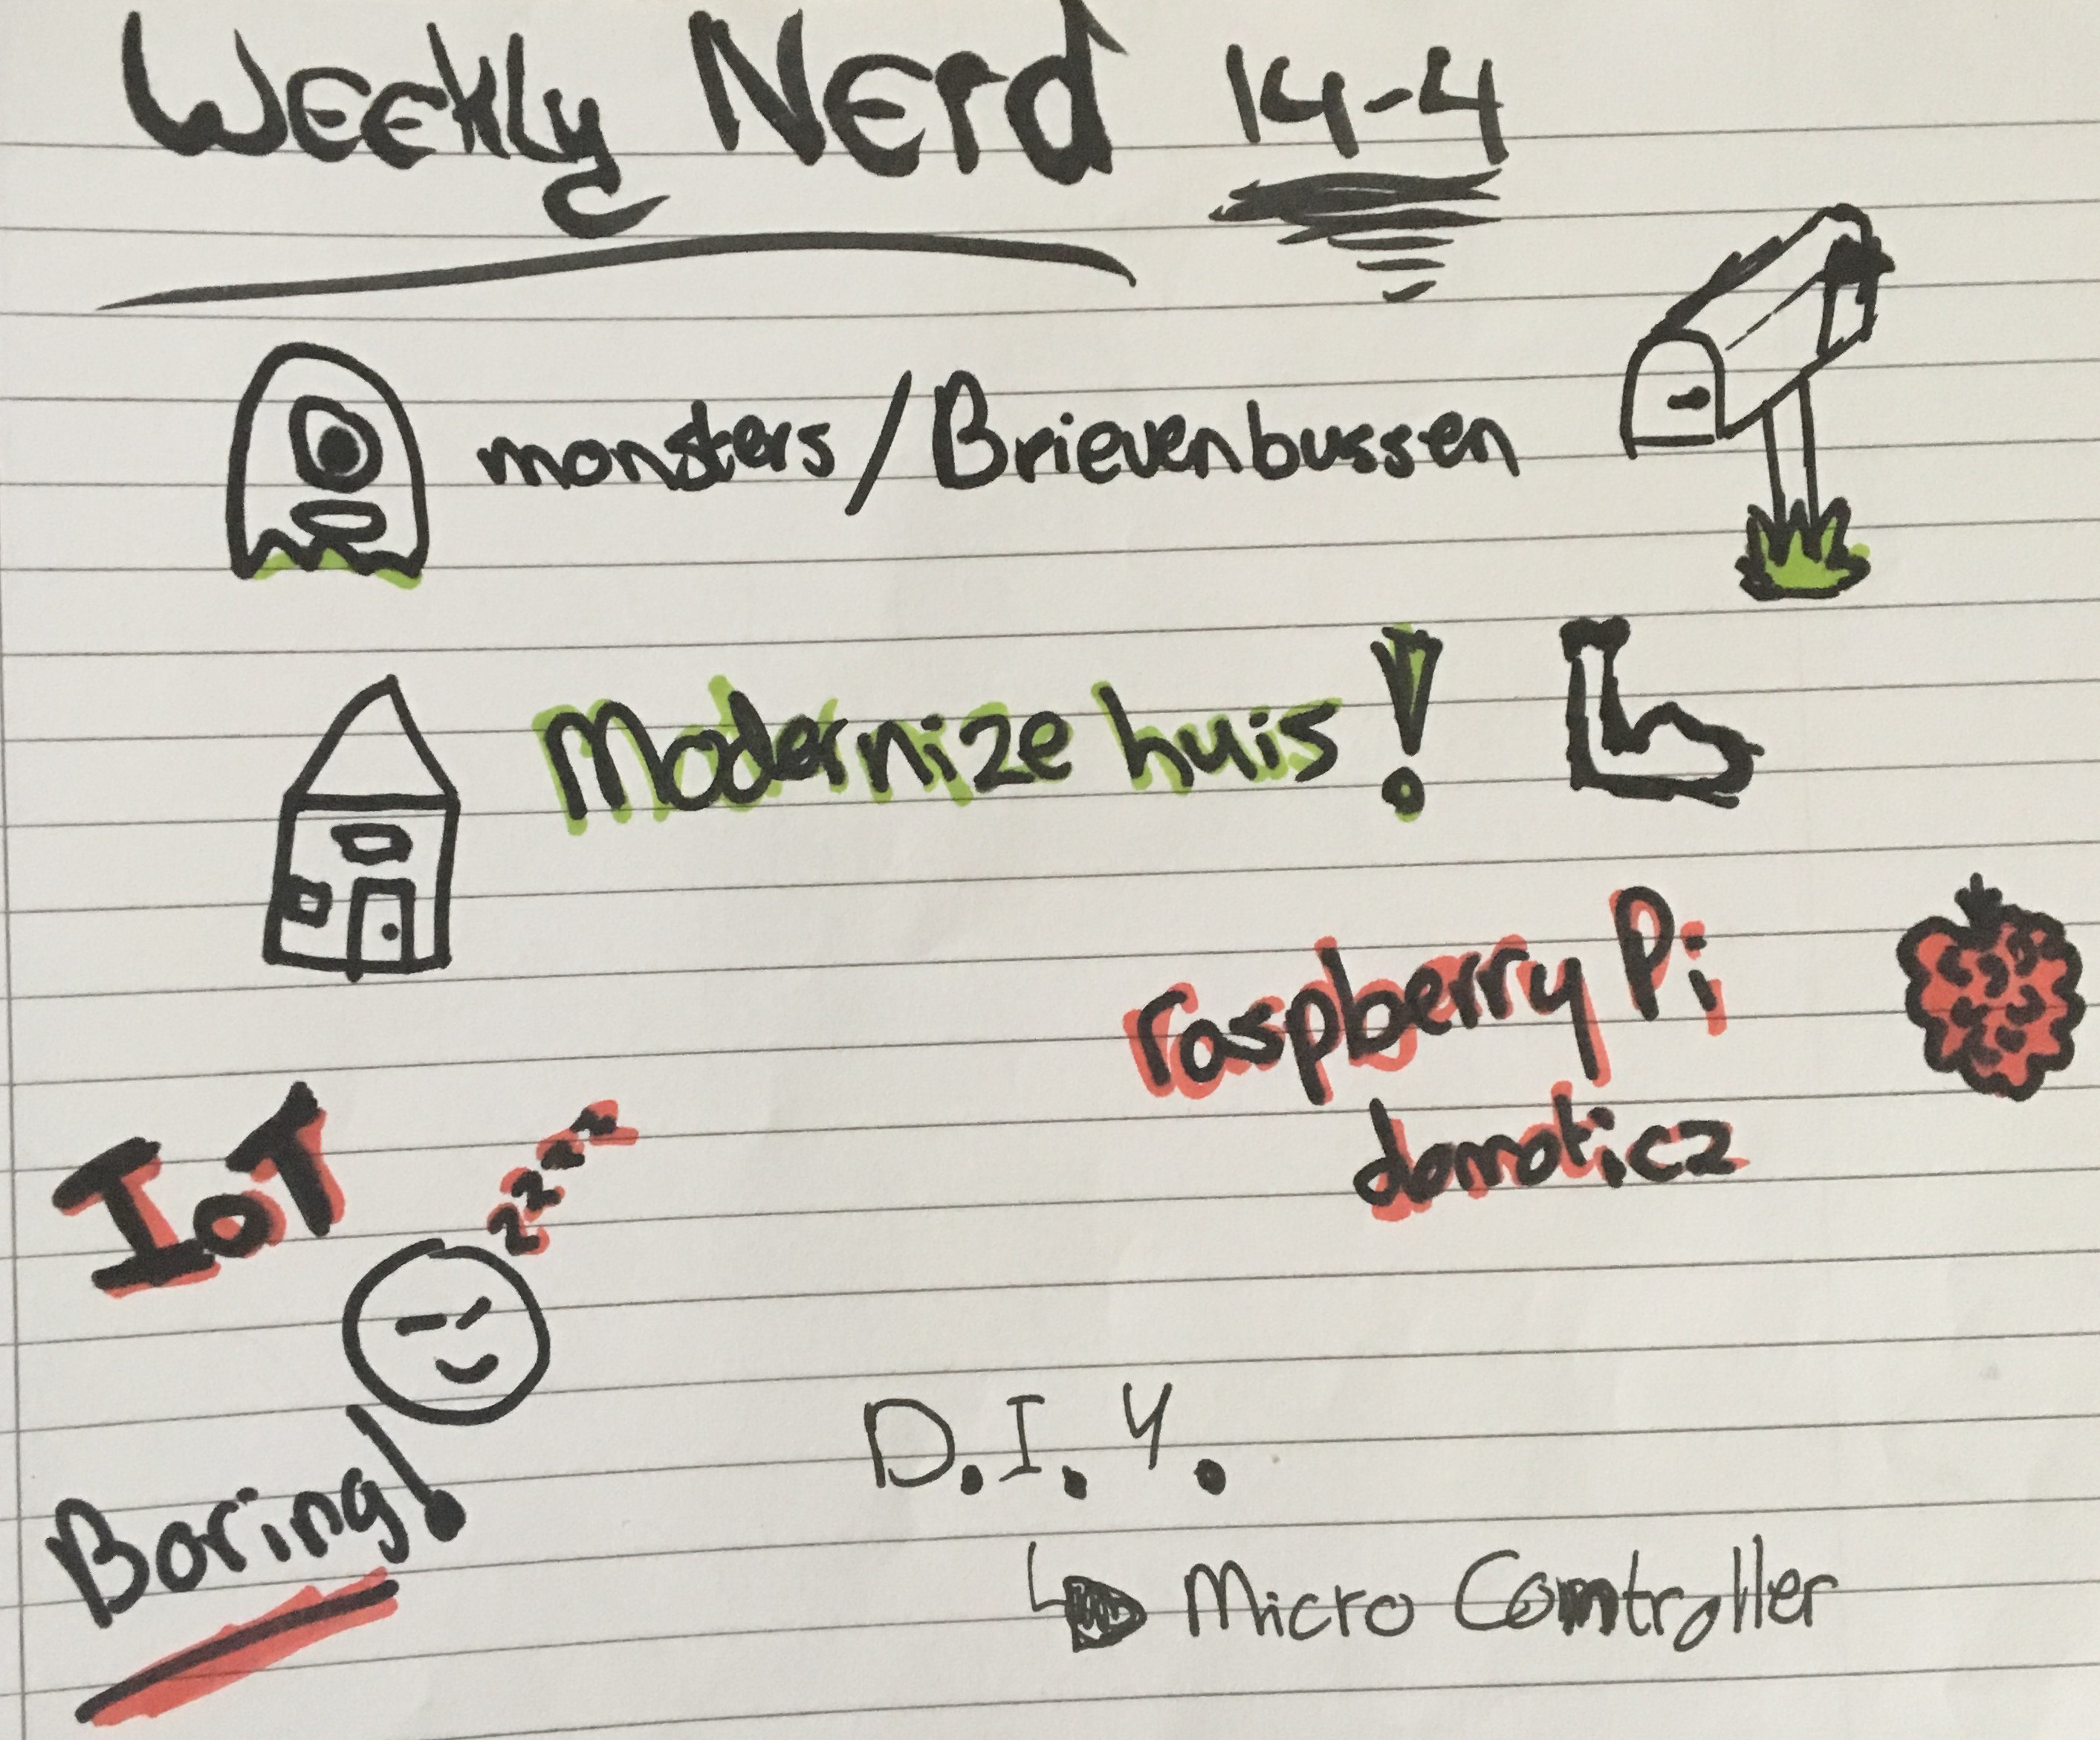 Weekly Nerd 14-4
monsters/Brievenbussen
Modernize huis!
raspberry Pi
domoticz
IoT
zzzzz
Boring!
D.I.Y.
Micro Comtroller